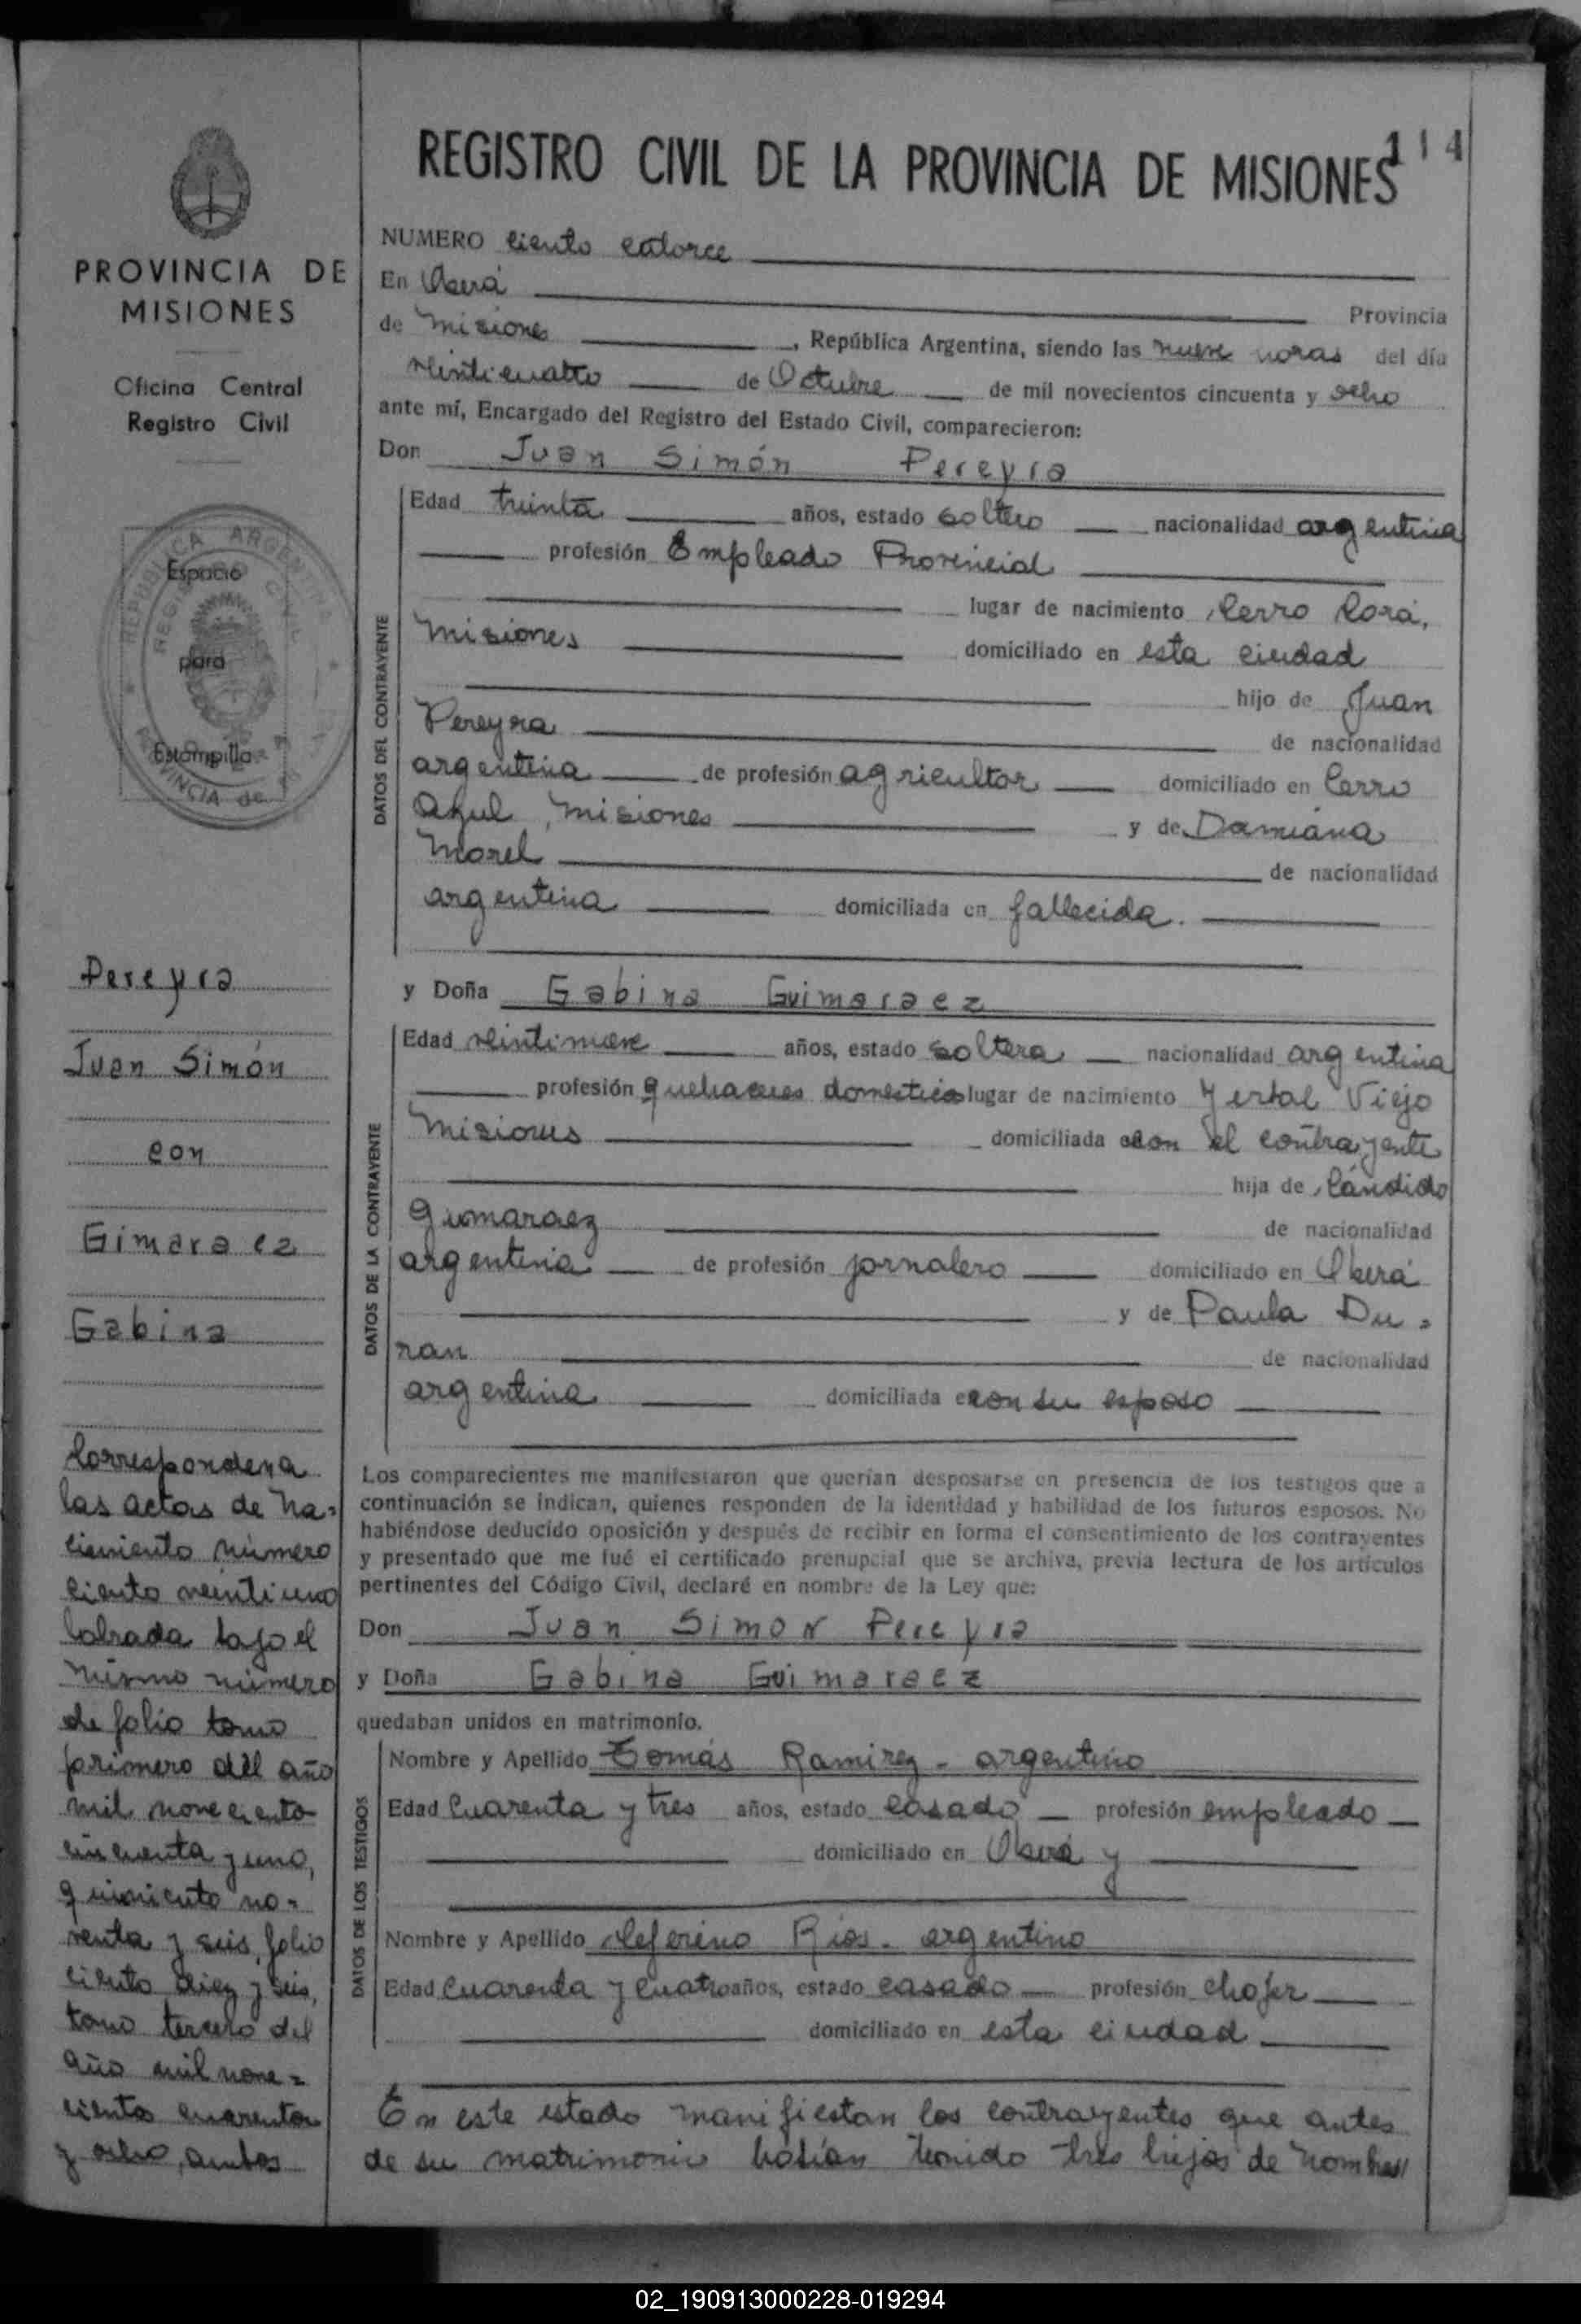 114
REGISTRO CIVIL DE LA PROVINCIA DE MISIONES
PROVINCIA DE
MISIONES
Oficina Central
Registro Civil
REPUBLICA ARGENTINA
REGISTRO CIVIL
PROVINCIA de
Espacio
para
Estampilla
Pereyra
Juan Simón
con
Gimaraez
Gabina
Corresponden a
las actas de na=
cimiento número
ciento veintiuno
labrada bajo el
mismo número
de folio tomo
primero del año
mil noveciento
cincuenta y uno,
quiniento no=
venta y seis, folio
ciento diez y seis,
tomo tercero del
año mil nove=
cientos cuarenta
y ocho, ambos
NUMERO ciento catorce
En Oberá
Provincia
de Misiones, República Argentina, siendo las nueve horas del día
veinticuatro de Octubre de mil novecientos cincuenta y ocho
ante mí, Encargado del Registro del Estado Civil, comparecieron:
Don Juan Simón Pereyra
DATOS DEL CONTRAYENTE
Edad treinta años, estado soltero nacionalidad argentina
profesión Empleado Provincial
lugar de nacimiento Cerro Corá,
Misiones domiciliado en esta ciudad
hijo de Juan
Pereyra de nacionalidad
argentina de profesión agricultor domiciliado en Cerro
Azul, Misiones y de Damiana
Morel de nacionalidad
argentina domiciliada en fallecida.
y Doña Gabina Guimaraez
DATOS DE LA CONTRAYENTE
Edad veintinueve años, estado soltera nacionalidad argentina
profesión quehaceres domesticos lugar de nacimiento Yerbal Viejo
Misiones domiciliada con el contrayente
hija de Cándido
Guimaraez de nacionalidad
argentina de profesión jornalero domiciliado en Oberá
y de Paula Du=
ran de nacionalidad
argentina domiciliada con su esposo
Los comparecientes me manifestaron que querían desposarse en presencia de los testigos que a
continuación se indican, quienes responden de la identidad y habilidad de los futuros esposos. No
habiéndose deducido oposición y después de recibir en forma el consentimiento de los contrayentes
y presentado que me fué el certificado prenupcial que se archiva, previa lectura de los artículos
pertinentes del Código Civil, declaré en nombre de la Ley que:
Don Juan Simon Pereyra
y Doña Gabina Guimaraez
quedaban unidos en matrimonio.
DATOS DE LOS TESTIGOS
Nombre y Apellido Tomás Ramirez - argentino
Edad Cuarenta y tres años, estado casado profesión empleado
domiciliado en Oberá y
Nombre y Apellido Ceferino Rios - argentino
Edad Cuarenta y cuatro años, estado casado profesión chofer
domiciliado en esta ciudad
En este estado manifiestan los contrayentes que antes
de su matrimonio habían tenido tres hijos de nombres
02_190913000228-019294